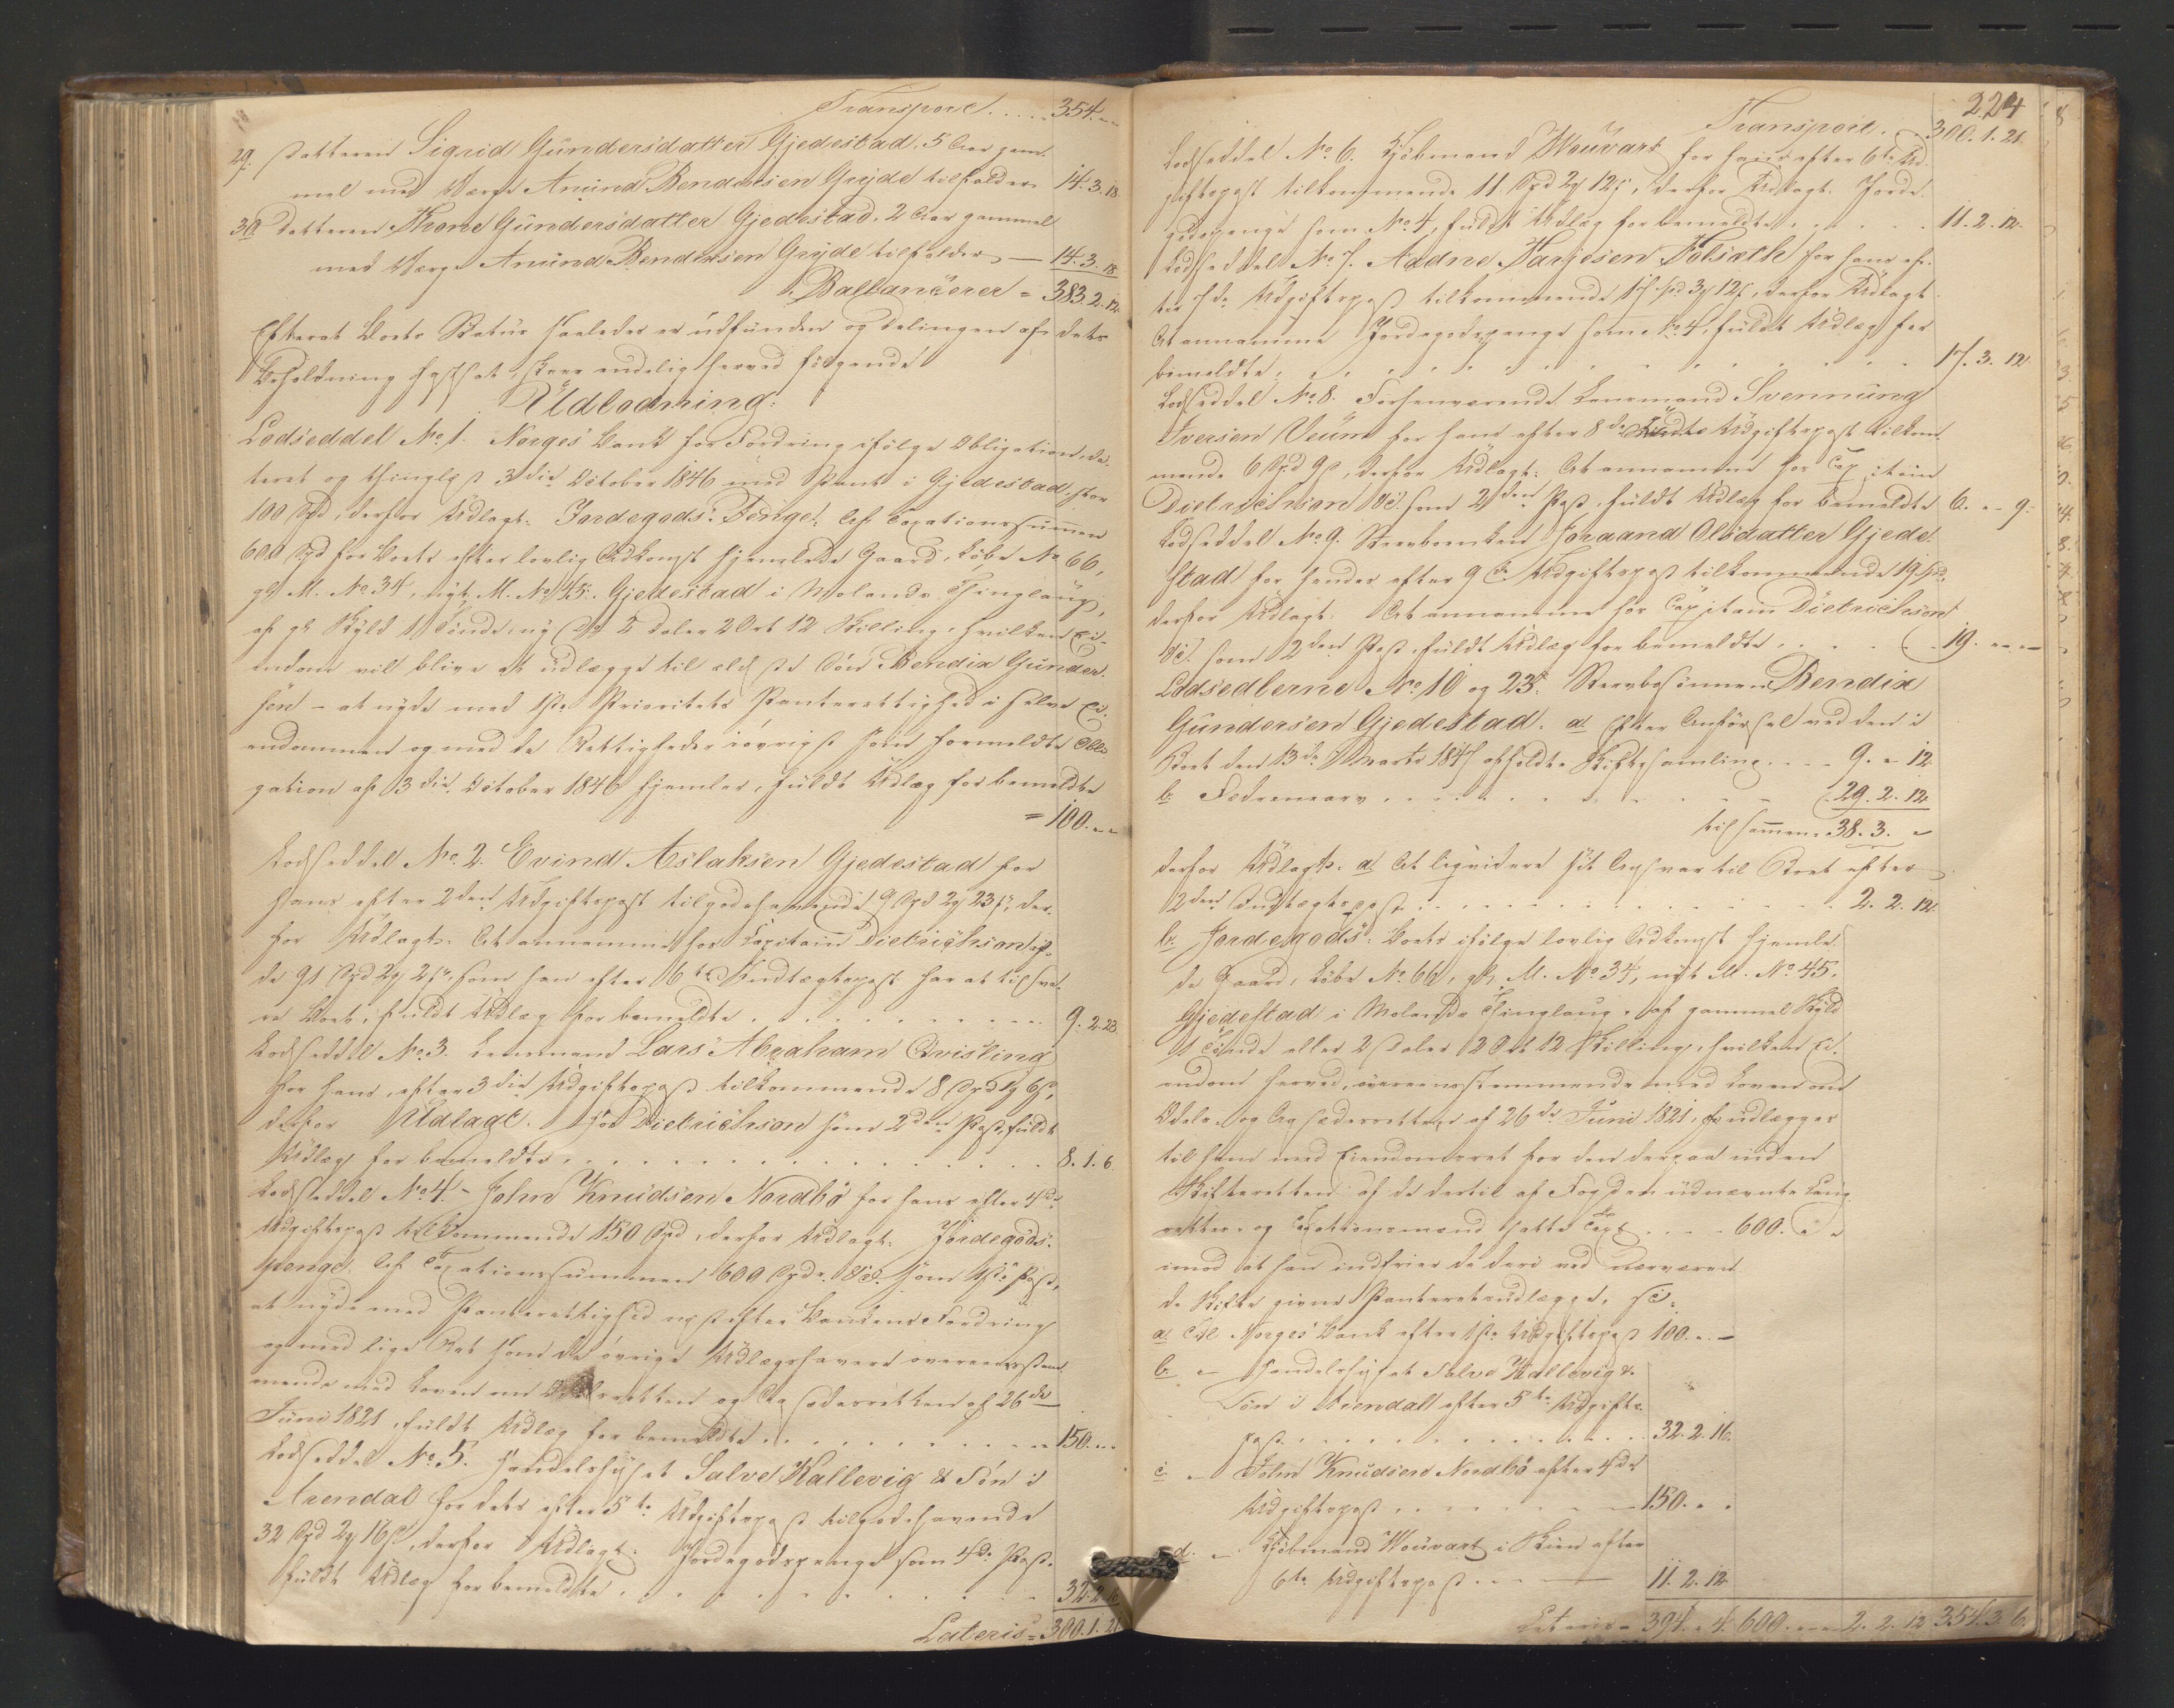 Transport . . . . . 354. - -
29. Datteren Sigrid Gundersdatter Gjedestad, 5 Aar gam-
mel med Værge Anund Bendixsen Gryde tilfalder 14. 3. 18.
30. Datteren Thone Gundersdatter Gjedestad, 2 Aar gammel
med Værge Anund Bendixsen Gryde tilfalder — 14. 3. 18.
Ballancerer = 383. 2. 12.
Efterat Boets Status saaledes er udfunden og Delingen af dets
Beholdning fastsat, skeer endelig herved følgende
Udlodning:
Lodseddel No. 1. Norges Bank for Fordring ifølge Obligation, da-
teret og thinglæst 3die October 1846 med Pant i Gjedestad, stor
100 Spd, derfor Udlagt: Jordegods-Penge: Af Taxationssummen
600 Spd for Boets efter lovlig Adkomst hjemlede Gaard, Løbe No 66,
gl. M. No 34, nyt M. No 45. Gjedestad i Molands Thinglaug,
af gl. Skyld 1 Tønde, ny Do 2 Daler 2 Ort 12 Skilling, hvilken Ei-
endom vil blive at udlægge til ældste Søn Bendix Gunder-
sen - at nyde med 1ste Prioritets Panterettighed i selve Ei-
endommen og med de Rettigheder iøvrigt som formeldte Obli-
gation af 3die October 1846 hjemler, fuldt Udlæg for bemeldte
= 100. - -
Lodseddel No. 2. Evind Aslaksen Gjedestad for
hans efter 2den Udgiftspost tilgodehavende 9 Spd 2 23 s, der-
for Udlagt: At annamme hos Capitain Dietrichson af
de 91 Spd 2 2 s, som han efter 6te Indtægtspost har at tilsva-
re Boet, fuldt Udlæg for bemeldte . . . . . . . . . 9. 2. 23.
Lodseddel No. 3. Lensmand Lars Abraham Qvisling
for hans efter 3die Udgiftspost tilkommende 8 Spd 1 6 s,
derfor Udlagt. Hos Dietrichson som 2den Post, fuldt
Udlæg for bemeldte . . . . . . . . . . . . . . 8. 1. 6.
Lodseddel No. 4 - John Knudsen Nordbö for hans efter 4de
Udgiftspost tilkommende 150 Spd, derfor Udlagt: Jordegods-
penge. Af Taxationssummen 600 Spd &c. som 1ste Post,
at nyde med Panterettighed næst efter Bankens Fordring
og med lige Ret som de øvrige Udlægshavere overeensstem-
mende med Loven om Odelsretten og Aasædesretten af 26de
Juni 1821, fuldt Udlæg for bemeldte . . . . . . . . . 150. - -
Lodseddel No. 5. Handelshuset Salve Kallevig & Søn i
Arendal for dets efter 5te Udgiftspost tilgodehavende
32 Spd 2 16 s, derfor Udlagt: Jordegodspenge som 4de Post.
fuldt Udlæg for bemeldte . . . . . . . . . . . 32. 2. 16.
Lateris = 300. 1. 21.
224
Transport. . 300. 1. 21.
Lodseddel No. 6. Kjöbmand Wouvart for hans efter 6te Ud-
giftspost tilkommende 11 Spd 2 12 s, derfor Udlagt: Jorde-
godspenge som No. 4, fuldt Udlæg for bemeldte . . . . . 11. 2. 12.
Lodseddel No. 7. Aadne Tarjesen Folsæth for hans ef-
ter 7de Udgiftspost tilkommende 17 Spd 3 12 s, derfor Udlagt
At annamme Jordegodspenge som No. 4, fuldt Udlæg for
bemeldte . . . . . . . . . . . . . . 17. 3. 12
Lodseddel No. 8. Forhenværende Lensmand Svennung
Iversen Veum for hans efter 8de Udgiftspost tilkom-
mende 6 Spd 9 s, derfor Udlagt: At annamme hos Capitain
Dietrichson &c. som 2den Post, fuldt Udlæg for bemeldte 6. - 9.
Lodseddel No. 9. Stervboenken Joraand Olsdatter Gjede-
stad for hendes efter 9de Udgiftspost tilkommende 19 Spd.
derfor Udlagt: At annamme hos Capitain Dietrichson
&c. som 2den Post, fuldt Udlæg for bemeldte . . . . . 19. - -
Lodsedlerne No. 10 og 23. Stervbosønnen Bendix
Gundersen Gjedestad. a. Efter Anførsel ved den i
Boet den 13de Marts 1847 afholdte Skiftesamling . . . 9. - 12
b. Fædrenearv . . . . . . . . . . . 29. 2. 12
tilsammen 38. 3. -
derfor Udlagt: a. At liqvidere sit Ansvar til Boet efter
2den Indtægtspost . . . . . . . . . . . . . 2. 2. 12.
b. Jordegods: Boets ifølge lovlig Adkomst hjemle-
de Gaard, Løbe No. 66, gl. M. No. 34, nyt M. No. 45.
Gjedestad i Molands Thinglaug, af gammel Skyld
1 Tønde eller 2 Daler 2 Ort 12 Skilling, hvilken Ei-
endom herved, overeensstemmende med Loven om
Odels- og Aasædesretten af 26de Juni 1821, udlægges
til ham med Eiendomsret for den derpaa inden
Skifteretten af de dertil af Fogden udnævnte Laug-
rettes- og Taxationsmænd satte Taxt . . . . 600. - -
imod at han indfrier de deri ved nærværen-
de Skifte givne Panteretsudlægge, sc:
a. Til Norges Bank efter 1ste Udgiftspost 100. - -
b. — Handelshuset Salve Kallevig &
Søn i Arendal efter 5te Udgifts-
post . . . . . . . . . . . 32. 2. 16.
c. — John Knudsen Nordbö efter 4de
Udgiftspost . . . . . . . 150. - -
d. — Kjöbmand Wouvart i Skien efter
6te Udgiftspost . . . — 11. 2. 12
Lateris = 394. - 4. 600. - - 2. 2. 12 354. 3. 6.